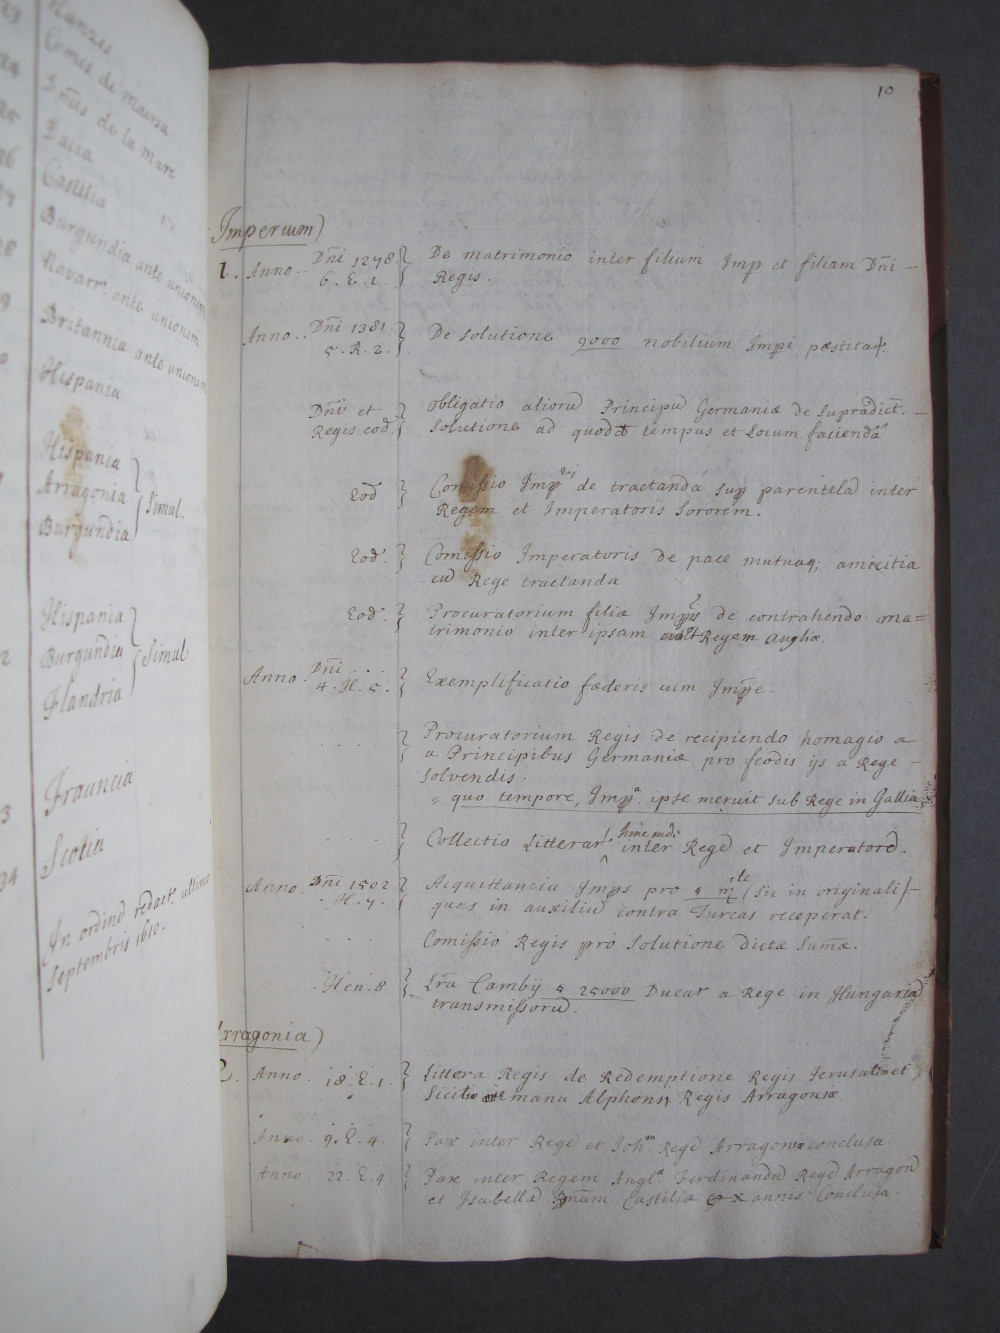 Hanzes
Comes de maersa
Dñus de la mare
Dacia
Castilia
Burgundia ante unionem
Navarr. ante unionem
Britannia ante unionem
Hispania
Hispania
Arragonia
Burgundia
Simul.
Hispania
Burgundia
Flandria
Simul
Frauncia
Scotia
34
In ordinē redact. ultimo
Septembris 1610.
10
Imperium)
1. Anno.. Dñi 1278 6. E. 1. } De matrimonio inter filium Imp et filiam Dñi –
Regis.
Anno.. Dñi 1381 5. R. 2. } De solutione 9000 nobilium Impi præstitar.
Dñi et Regis eod. } Obligatio aliorū Principū Germaniæ de supradict. –
solutione ad quodd tempus et Locum faciendā
Eod } Comissio Imp de tractandā sup parentelā inter
Regem et Imperatoris Sororem.
Eod. } Comissio Imperatoris de pace mutuaq; amicitia
cū Rege tractanda
Eod. } Procuratorium filiæ Impis de contrahendo ma=
trimonio inter ipsam et Regem Angliæ.
Anno. Dñi ... 4. H. 5. } Exemplificatio fœderis cum Impe.
. . . . } Procuratorium Regis de recipiendo homagio a
a Principibus Germaniæ pro feodis ijs a Rege –
solvendis.
quo tempore, Impr. ipse meruit sub Rege in Gallia
. . . } Collectio Litterar. hinc inde inter Regē et Imperatorē.
Anno. Dñi 1502 . H. 7. } Acquittancia Imps pro 9 mˡᵉ (sic in originali) –
quas in auxiliū contra Turcas receperat.
. . . Comissio Regis pro solutione dictæ sumæ.
. Hen. 8 } Lr̃a Cambij 5 25000 Ducat a Rege in Hungaria
transmissorū.
Arragonia)
2. Anno. 18. E. 1. } Littera Regis de Redemptione Regis Jerusalem et
Siciliæ manu Alphonsi Regis Arragoniæ
Anno. 9. E. 4. } Pax inter Regē et Joh.ᵐ Regē Arragoniæ conclusa.
Anno. 22. E. 4. } Pax inter Regem Angl.ᵃ Ferdinandū Regē Arragon
et Isabellā Castiliæ x annis Conclusa.